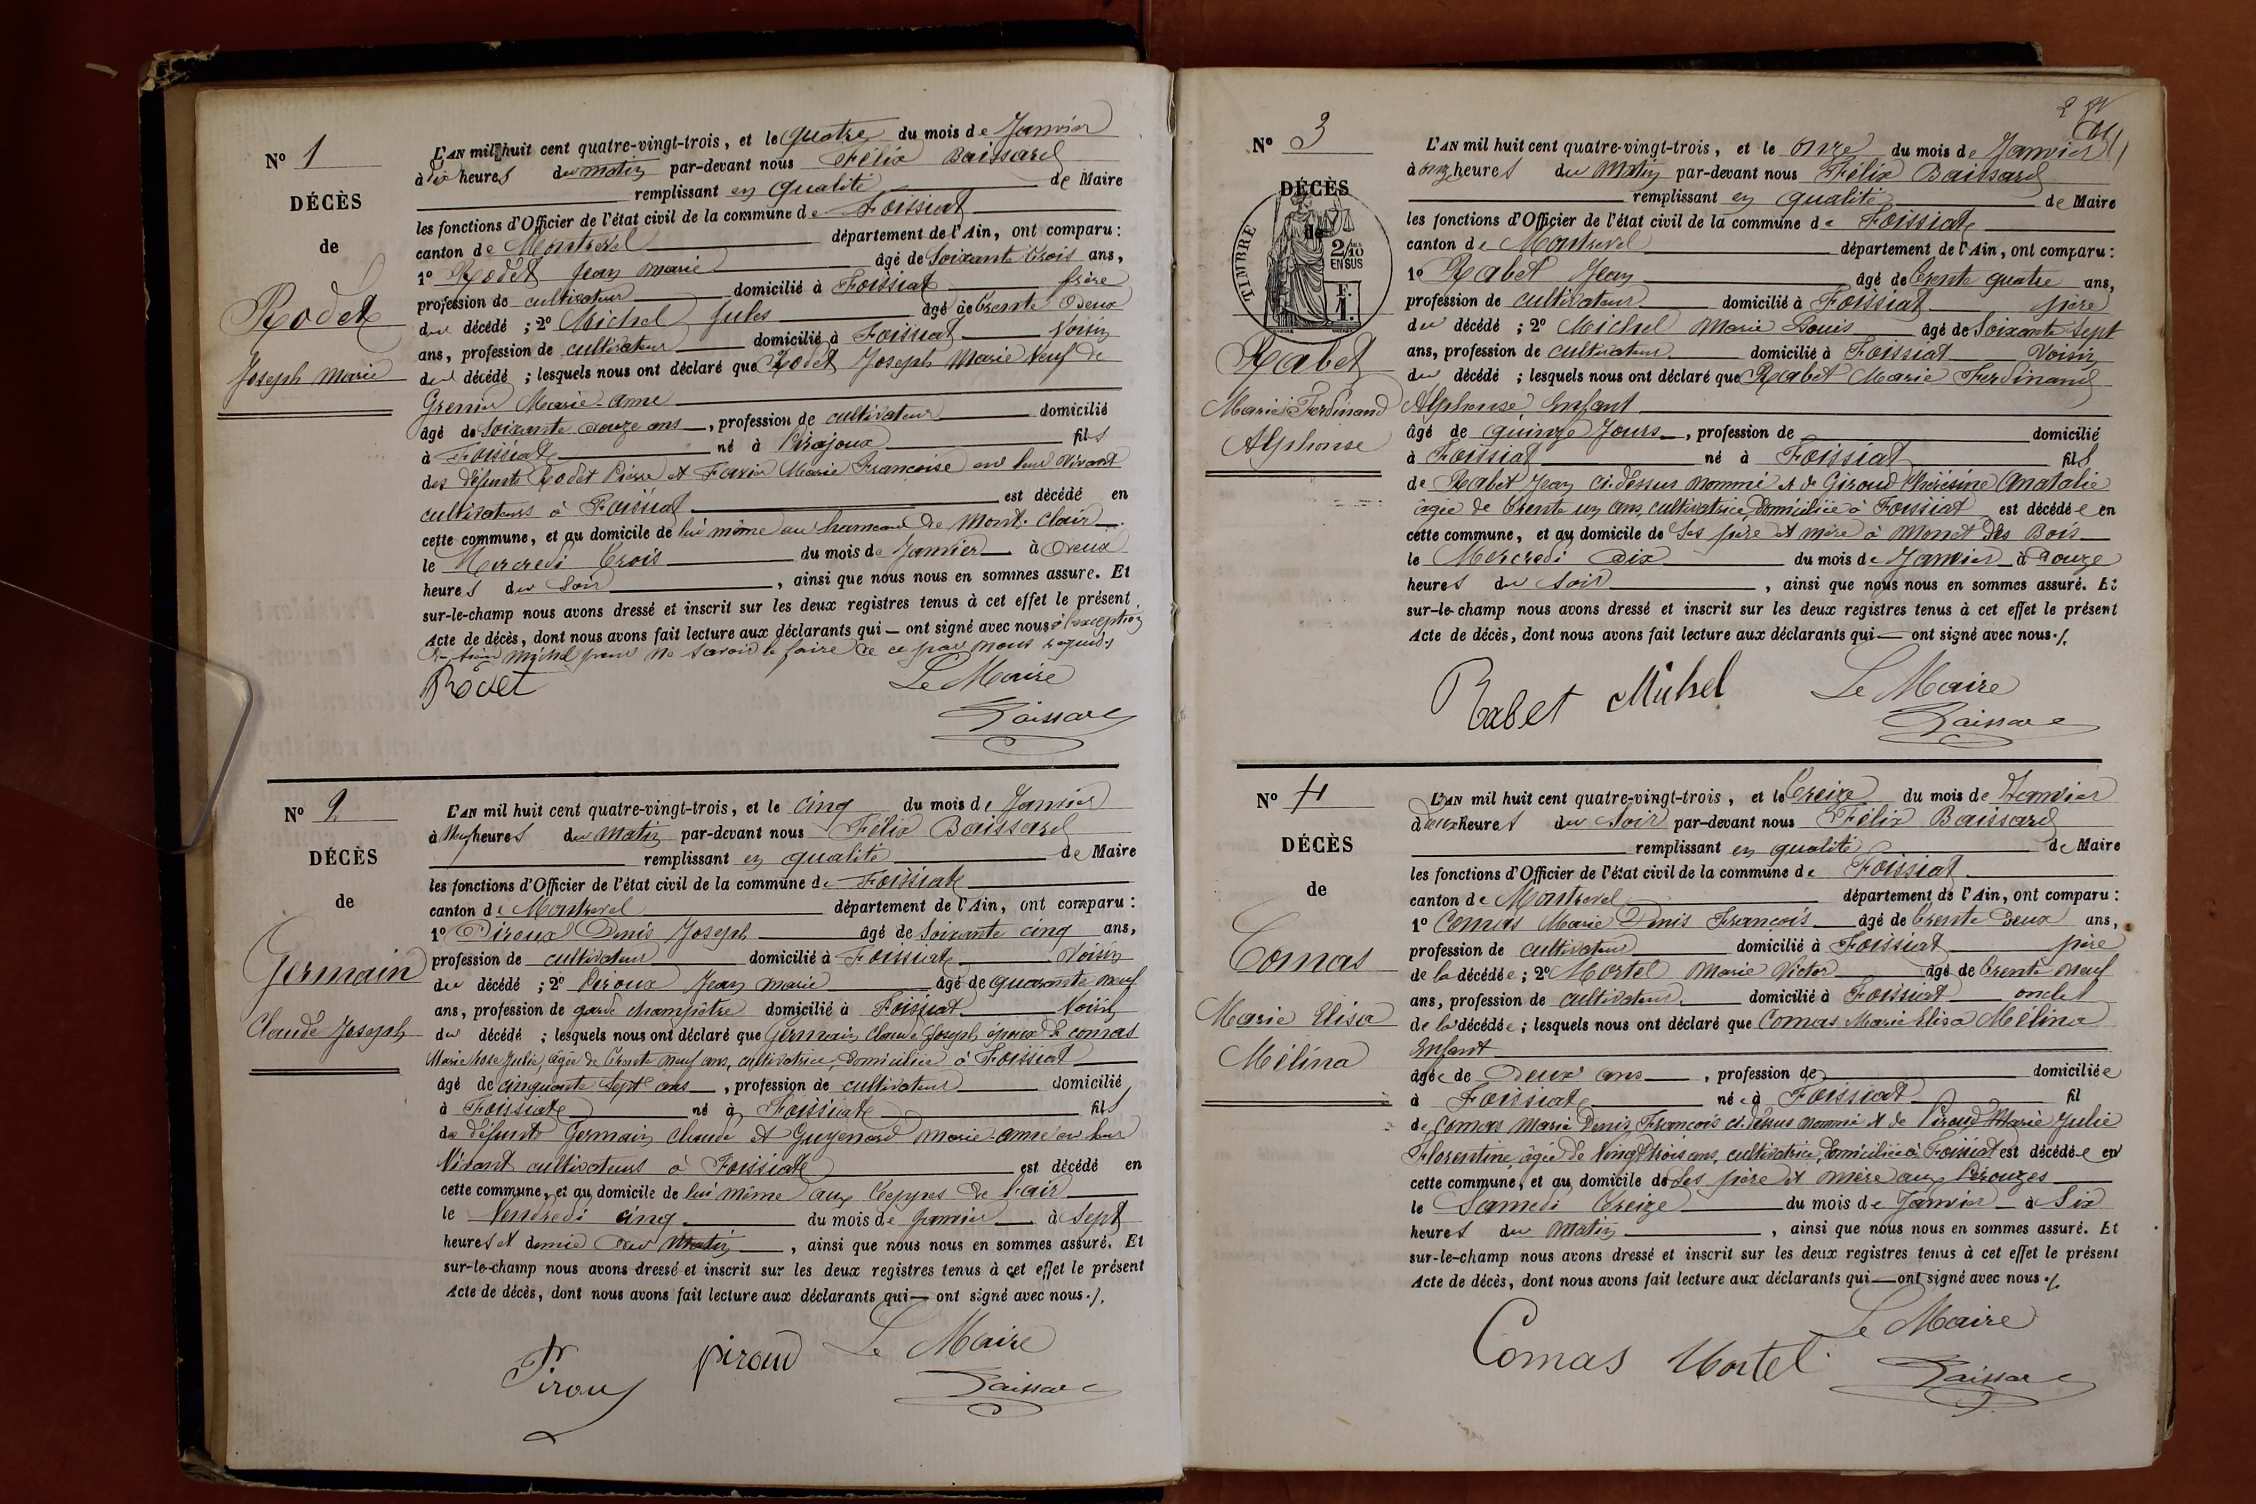 N° 1
DÉCÈS
de
Rodet
Joseph Marie
L'AN mil huit cent quatre-vingt-trois, et le quatre du mois de Janvier
à dix heures du matin par-devant nous Félix Baissard
remplissant en qualité de Maire
les fonctions d'Officier de l'état civil de la commune de Foissiat
canton de Montrevel département de l'Ain, ont comparu :
1° Rodet Jean Marie âgé de Soixante trois ans,
profession de cultivateur domicilié à Foissiat frère
du décédé ; 2° Michel Jules âgé de trente deux
ans, profession de cultivateur domicilié à Foissiat Voisin
du décédé ; lesquels nous ont déclaré que Rodet Joseph Marie Veuf de
Grenier Marie-Anne
âgé de Soixante douze ans, profession de cultivateur domicilié
à Foissiat né à Pirajoux fils
des défunts Rodet Pierre et Marie Françoise en leur vivant
cultivateurs à Foissiat est décédé en
cette commune, et au domicile de lui même au hameau de Mont-Clair
le Mercredi trois du mois de Janvier à deux
heures du Soir, ainsi que nous nous en sommes assuré. Et
sur-le-champ nous avons dressé et inscrit sur les deux registres tenus à cet effet le présent
Acte de décès, dont nous avons fait lecture aux déclarants qui — ont signé avec nous à l'exception
du sieur Michel pour ne savoir le faire de ce par nous requis
Rodet Le Maire
Baissard
N° 2
DÉCÈS
de
Germain
Claude Joseph
L'AN mil huit cent quatre-vingt-trois, et le cinq du mois de Janvier
à Neuf heures du matin par-devant nous Félix Baissard
remplissant en qualité de Maire
les fonctions d'Officier de l'état civil de la commune de Foissiat
canton de Montrevel département de l'Ain, ont comparu :
1° Piroux Denis Joseph âgé de Soixante cinq ans,
profession de cultivateur domicilié à Foissiat Voisin
du décédé ; 2° Piroux Jean Marie âgé de quarante neuf
ans, profession de garde champêtre domicilié à Foissiat Voisin
du décédé ; lesquels nous ont déclaré que Germain Claude Joseph époux de Comas
Marie Rose Julie, âgée de trente neuf ans, cultivatrice, domiciliée à Foissiat
âgé de cinquante sept ans, profession de cultivateur domicilié
à Foissiat né à Foissiat fils
de défunts Germain Claude et Guyenard Marie-Anne en leur
Vivant cultivateurs à Foissiat est décédé en
cette commune, et au domicile de lui même aux de
le Vendredi cinq du mois de Janvier à Sept
heures et demie du Matin, ainsi que nous nous en sommes assuré. Et
sur-le-champ nous avons dressé et inscrit sur les deux registres tenus à cet effet le présent
Acte de décès, dont nous avons fait lecture aux déclarants qui — ont signé avec nous ./.
Piroux piroud Le Maire
Baissard
N° 3
DÉCÈS
de
TIMBRE
2/10
EN SUS
F.
1.
Rabet
Marie Ferdinand
Alphonse
L'AN mil huit cent quatre-vingt-trois, et le onze du mois de Janvier
à onze heures du Matin par-devant nous Félix Baissard
remplissant en qualité de Maire
les fonctions d'Officier de l'état civil de la commune de Foissiat
canton de Montrevel département de l'Ain, ont comparu :
1° Rabet Jean âgé de trente quatre ans,
profession de cultivateur domicilié à Foissiat père
du décédé ; 2° Michel Marie Louis âgé de Soixante Sept
ans, profession de cultivateur domicilié à Foissiat Voisin
du décédé ; lesquels nous ont déclaré que Rabet Marie Ferdinand
Alphonse Enfant
âgé de quinze Jours, profession de domicilié
à Foissiat né à Foissiat fils
de Rabet Jean ci-dessus nommé et de Giroud Thérésine Anatalie
âgée de trente un ans, cultivatrice, domiciliée à Foissiat est décédé en
cette commune, et au domicile de Ses père et mère à Monet des Bois
le Mercredi dix du mois de Janvier à Douze
heures du Soir, ainsi que nous nous en sommes assuré. Et
sur-le-champ nous avons dressé et inscrit sur les deux registres tenus à cet effet le présent
Acte de décès, dont nous avons fait lecture aux déclarants qui — ont signé avec nous ./.
Rabet Michel Le Maire
Baissard
N° 4
DÉCÈS
de
Comas
Marie Elisa
Mélina
L'AN mil huit cent quatre-vingt-trois, et le treize du mois de Janvier
à deux heures du Soir par-devant nous Félix Baissard
remplissant en qualité de Maire
les fonctions d'Officier de l'état civil de la commune de Foissiat
canton de Montrevel département de l'Ain, ont comparu :
1° Comas Marie Denis François âgé de trente deux ans,
profession de cultivateur domicilié à Foissiat père
de la décédée ; 2° Mortel Marie Victor âgé de trente neuf
ans, profession de cultivateur domicilié à Foissiat oncle
de la décédée ; lesquels nous ont déclaré que Comas Marie Elisa Mélina
Enfant
âgée de Deux ans, profession de domiciliée
à Foissiat née à Foissiat fil
de Comas Marie Denis François ci-dessus nommé et de Piroud Marie Julie
Florentine, âgée de Vingt trois ans, cultivatrice, domiciliée à Foissiat est décédée en
cette commune, et au domicile de Ses père et mère aux Pérouzes
le Samedi treize du mois de Janvier à Six
heures du Matin, ainsi que nous nous en sommes assuré. Et
sur-le-champ nous avons dressé et inscrit sur les deux registres tenus à cet effet le présent
Acte de décès, dont nous avons fait lecture aux déclarants qui — ont signé avec nous ./.
Comas Mortel Le Maire
Baissard